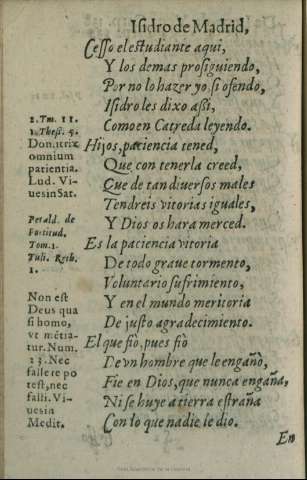 Isidro de Madrid,
Cesso el estudiante aqui,
Y los demas prosiguiendo,
Por no lo hazer yo si ofendo,
Isidro les dixo assi,
Como en Catreda leyendo.
Hijos, paciencia tened,
Que con tenerla creed,
Que de tan diuersos males
Tendreis vitorias iguales,
Y Dios os hara merced.
Es la paciencia vitoria
De todo graue tormento,
Voluntario sufrimiento,
Y en el mundo meritoria
De justo agradecimiento.
El que fio, pues fio
De vn hombre que le engañò,
Fie en Dios, que nunca engaña,
Ni se huye a tierra estraña
Con lo que nadie le dio.
2. Tm. 11.
1. Thess. 5.
Don. trix
omnium
patientia.
Lud. Vi-
ues in Sat.
Perald. de
Fortitud.
Tom. 1.
Tuli. Reth.
1.
Non est
Deus qua
si homo,
vt métia-
tur. Num.
23. Nec
fallere po
test, nec
falli. Vi-
ues in
Medit.
En